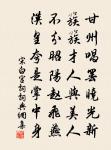 甘州唱罷曉光新
簇簇才人與美人
不分昭陽趙飛燕
漢皇夸是掌中身
宋白宮詞